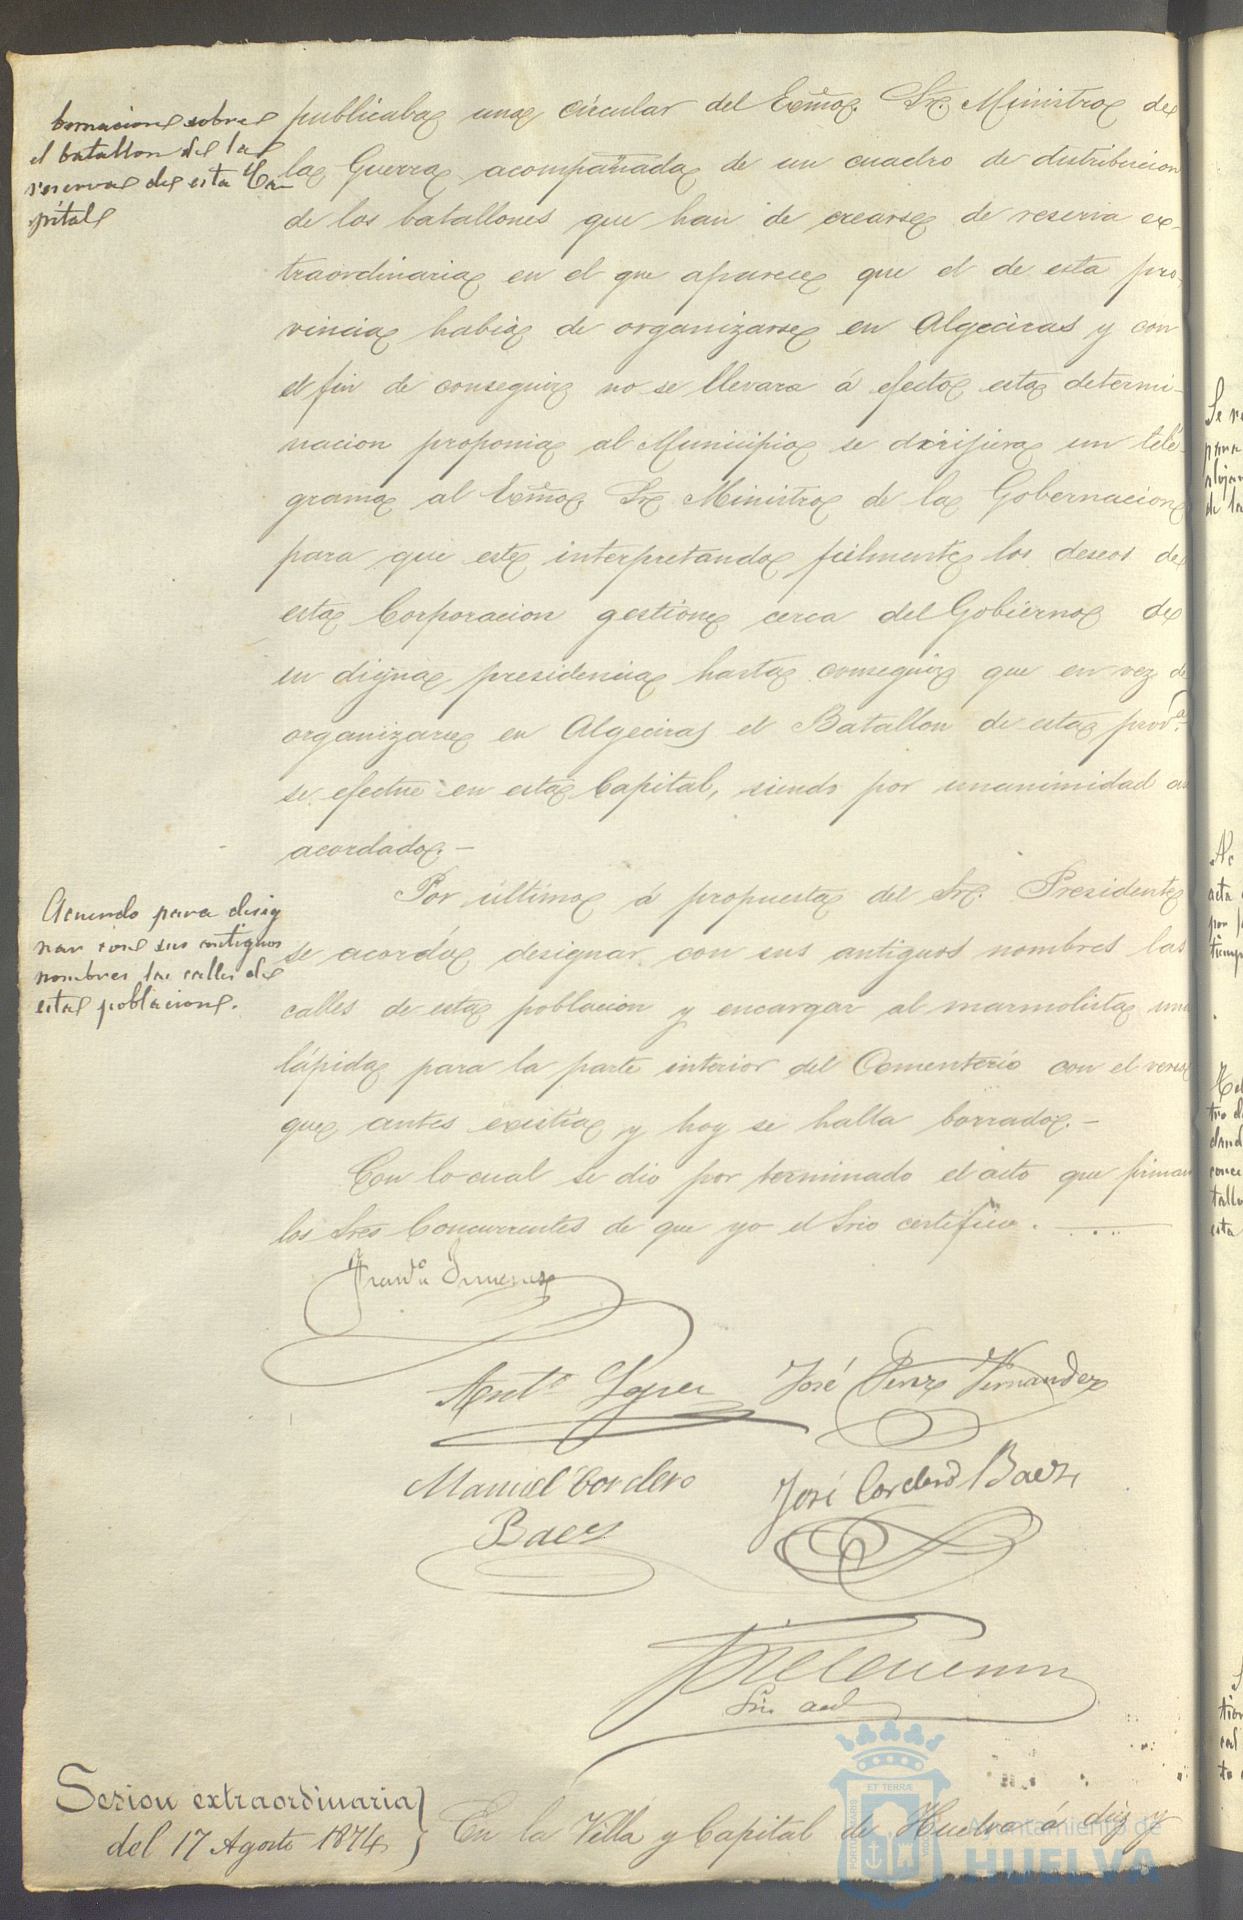 bernacion sobre
el batallon de la
reserva de esta Ca
pital
publicaba una circular del Exmo. Sr. Ministro de
la Guerra acompañada de un cuadro de distribucion
de los batallones que han de crearse de reserva ex-
traordinaria en el que aparece que el de esta pro-
vincia habia de organizarse en Algeciras y con
el fin de conseguir no se llevara á efecto esta determi-
nacion proponia al Municipio se dirijiera un telé-
grama al Exmo. Sr. Ministro de la Gobernacion
para que este interpretando fielmente los deseos de
esta Corporacion gestione cerca del Gobierno de
su digna presidencia hasta conseguir que en vez de
organizarse en Algeciras el Batallon de esta prova.
se efectue en esta Capital, siendo por unanimidad así
acordado.—
Acuerdo para desig
nar con sus antiguos
nombres las calles de
esta poblacion.
Por último á propuesta del Sr. Presidente
se acordó designar con sus antiguos nombres las
calles de esta poblacion y encargar al marmolista una
lápida para la parte interior del Cementerio con el verso
que antes existia y hoy se halla borrado.—
Con lo cual se dio por terminado el acto que firman
los Sres Concurrentes de que yo el Srio certifico.
Franco Jimenez
Anto Lopez
José Perez Fernandez
Manuel Cordero
Baez
José Cordero Baez
Srio
Sesion extraordinaria
del 17 Agosto 1874
En la Villa y Capital de Huelva á diez y
ET TERRÆ
PORTUS MARIS
CUSTODIA
Ayuntamiento de
HUELVA